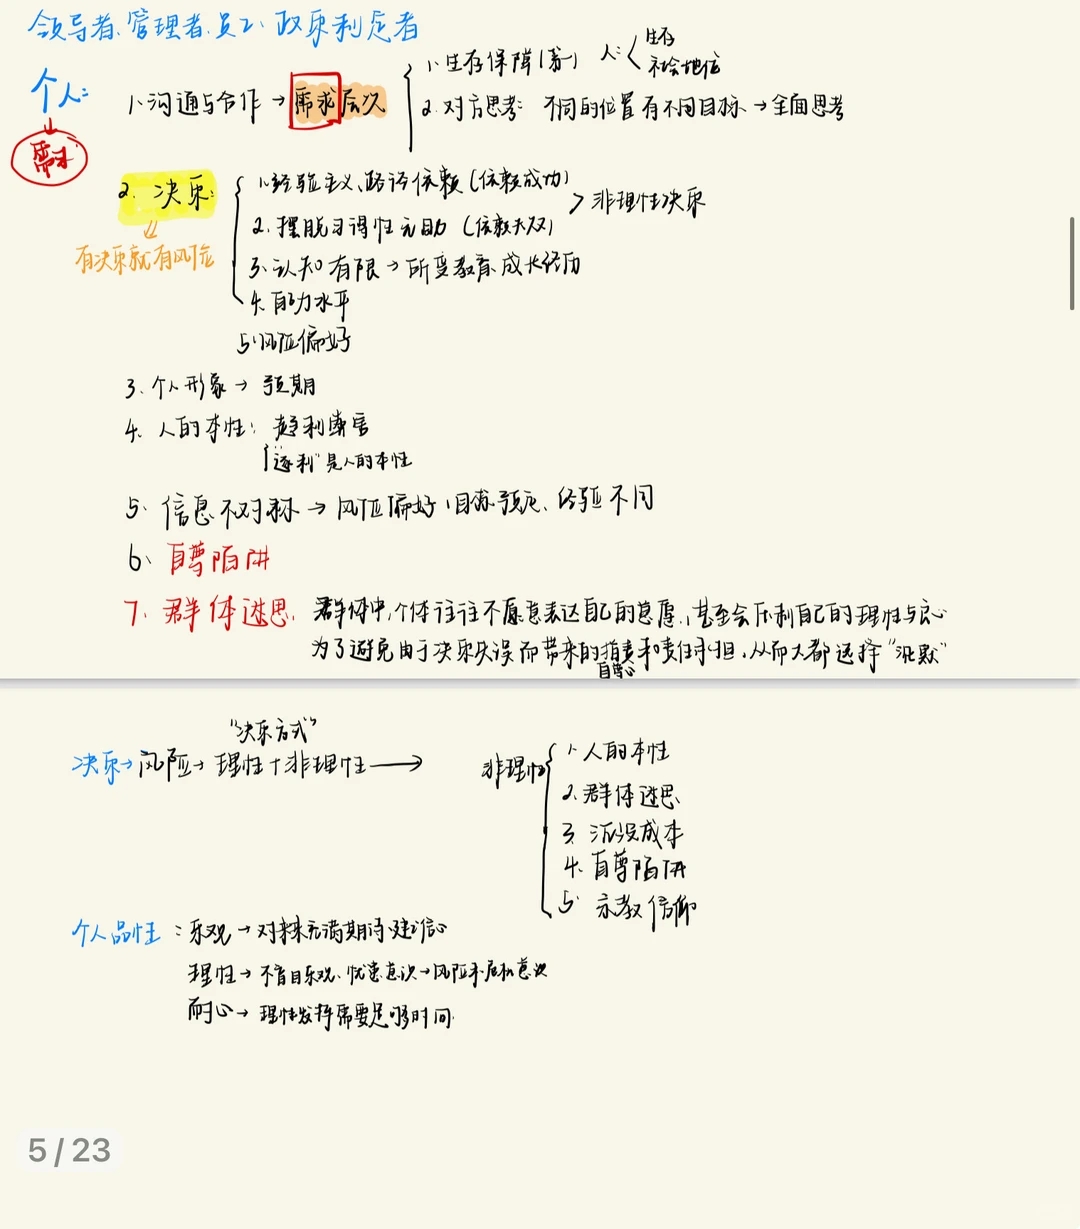 领导者、管理者、员工、政策制定者
个人：
需求
1、沟通与合作 → 需求层次
1、生存保障（薪） 人：< 生存 社会地位
2、对方思考： 不同的位置有不同目标 → 全面思考
2、决策：
有决策就有风险
1、经验主义、路径依赖（依赖成功）
2、摆脱习得性无助（依赖失败）
> 非理性决策
3、认知有限 → 所受教育、成长经历
4、能力水平
5、风险偏好
3、个人形象 → 预期
4、人的本性： 趋利避害
“逐利”是人的本性
5、信息不对称 → 风险偏好、目标预定、经验不同
6、自尊陷阱
7、群体迷思： 群体中，个体往往不愿意表达自己的意愿，甚至会压制自己的理性与良心
为了避免由于决策失误而带来的指责和责任承担，从而大都选择“沉默”
自尊心
“决策方式”
决策 → 风险 → 理性+非理性 ⟶
非理性
1、人的本性
2、群体迷思
3、沉没成本
4、自尊陷阱
5、宗教信仰
个人品性：乐观 → 对未来充满期待、建信心
理性 → 不盲目乐观、忧患意识 → 风险和危机意识
耐心 → 理性发挥需要足够时间
5 / 23